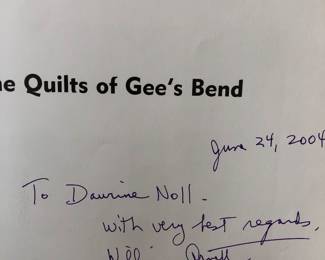 he Quilts of Gee's Bend
June 24, 2004
To Daurine Noll.
with very best regards,